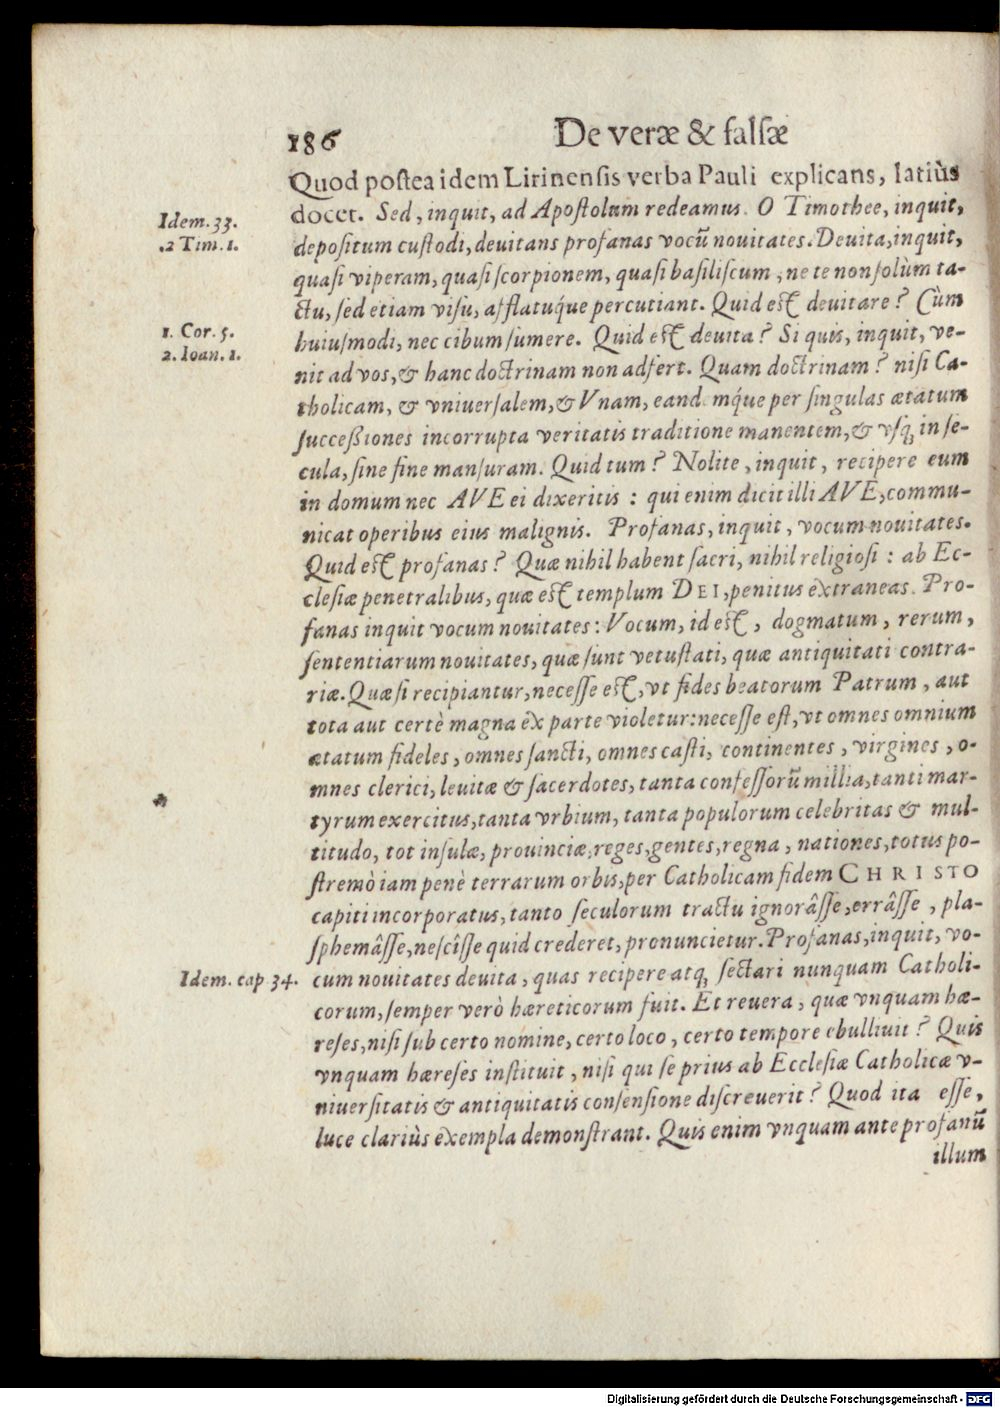 186 De veræ & falsæ
Quod postea idem Lirinensis verba Pauli explicans, latiùs
docet. Sed, inquit, ad Apostolum redeamus. O Timothee, inquit,
Idem. 33.
.2 Tim. 1.
depositum custodi, deuitans profanas vocũ nouitates. Deuita, inquit,
quasi viperam, quasi scorpionem, quasi basiliscum, ne te non solùm ta-
ctu, sed etiam visu, afflatuq́ue percutiant. Quid est deuitare? Cùm
1. Cor. 5.
huiusmodi, nec cibum sumere. Quid est deuita? Si quis, inquit, ve-
2. Ioan. 1.
nit ad vos, & hanc doctrinam non adfert. Quam doctrinam? nisi Ca-
tholicam, & vniuersalem, & Vnam, eandemq́ue per singulas ætatum
successiones incorrupta veritatis traditione manentem, & vsq, in se-
cula, sine fine mansuram. Quid tum? Nolite, inquit, recipere eum
in domum nec AVE ei dixeritis : qui enim dicit illi AVE, commu-
nicat operibus eius malignis. Profanas, inquit, vocum nouitates.
Quid est profanas? Quæ nihil habent sacri, nihil religiosi : ab Ec-
clesiæ penetralibus, quæ est templum DEI, penitus extraneas. Pro-
fanas inquit vocum nouitates : Vocum, id est, dogmatum, rerum,
sententiarum nouitates, quæ sunt vetustati, quæ antiquitati contra-
riæ. Quæ si recipiantur, necesse est, vt fides beatorum Patrum, aut
tota aut certè magna ex parte violetur: necesse est, vt omnes omnium
ætatum fideles, omnes sancti, omnes casti, continentes, virgines, o-
mnes clerici, leuitæ & sacerdotes, tanta confessorũ millia, tanti mar-
tyrum exercitus, tanta vrbium, tanta populorum celebritas & mul-
titudo, tot insulæ, prouinciæ, reges, gentes, regna, nationes, totus po-
stremò iam penè terrarum orbis, per Catholicam fidem CHRISTO
capiti incorporatus, tanto seculorum tractu ignorâsse, errâsse, pla-
sphemâsse, nescîsse quid crederet, pronuncietur. Profanas, inquit, vo-
Idem. cap 34.
cum nouitates deuita, quas recipere atq, sectari nunquam Catholi-
corum, semper verò hæreticorum fuit. Et reuera, quæ vnquam hæ-
reses, nisi sub certo nomine, certo loco, certo tempore ebulliuit? Quis
vnquam hæreses instituit, nisi qui se prius ab Ecclesiæ Catholicæ v-
niuersitatis & antiquitatis consensione discreuerit? Quod ita esse,
luce clariùs exempla demonstrant. Quis enim vnquam ante profanũ
illum
Digitalisierung gefördert durch die Deutsche Forschungsgemeinschaft - DFG